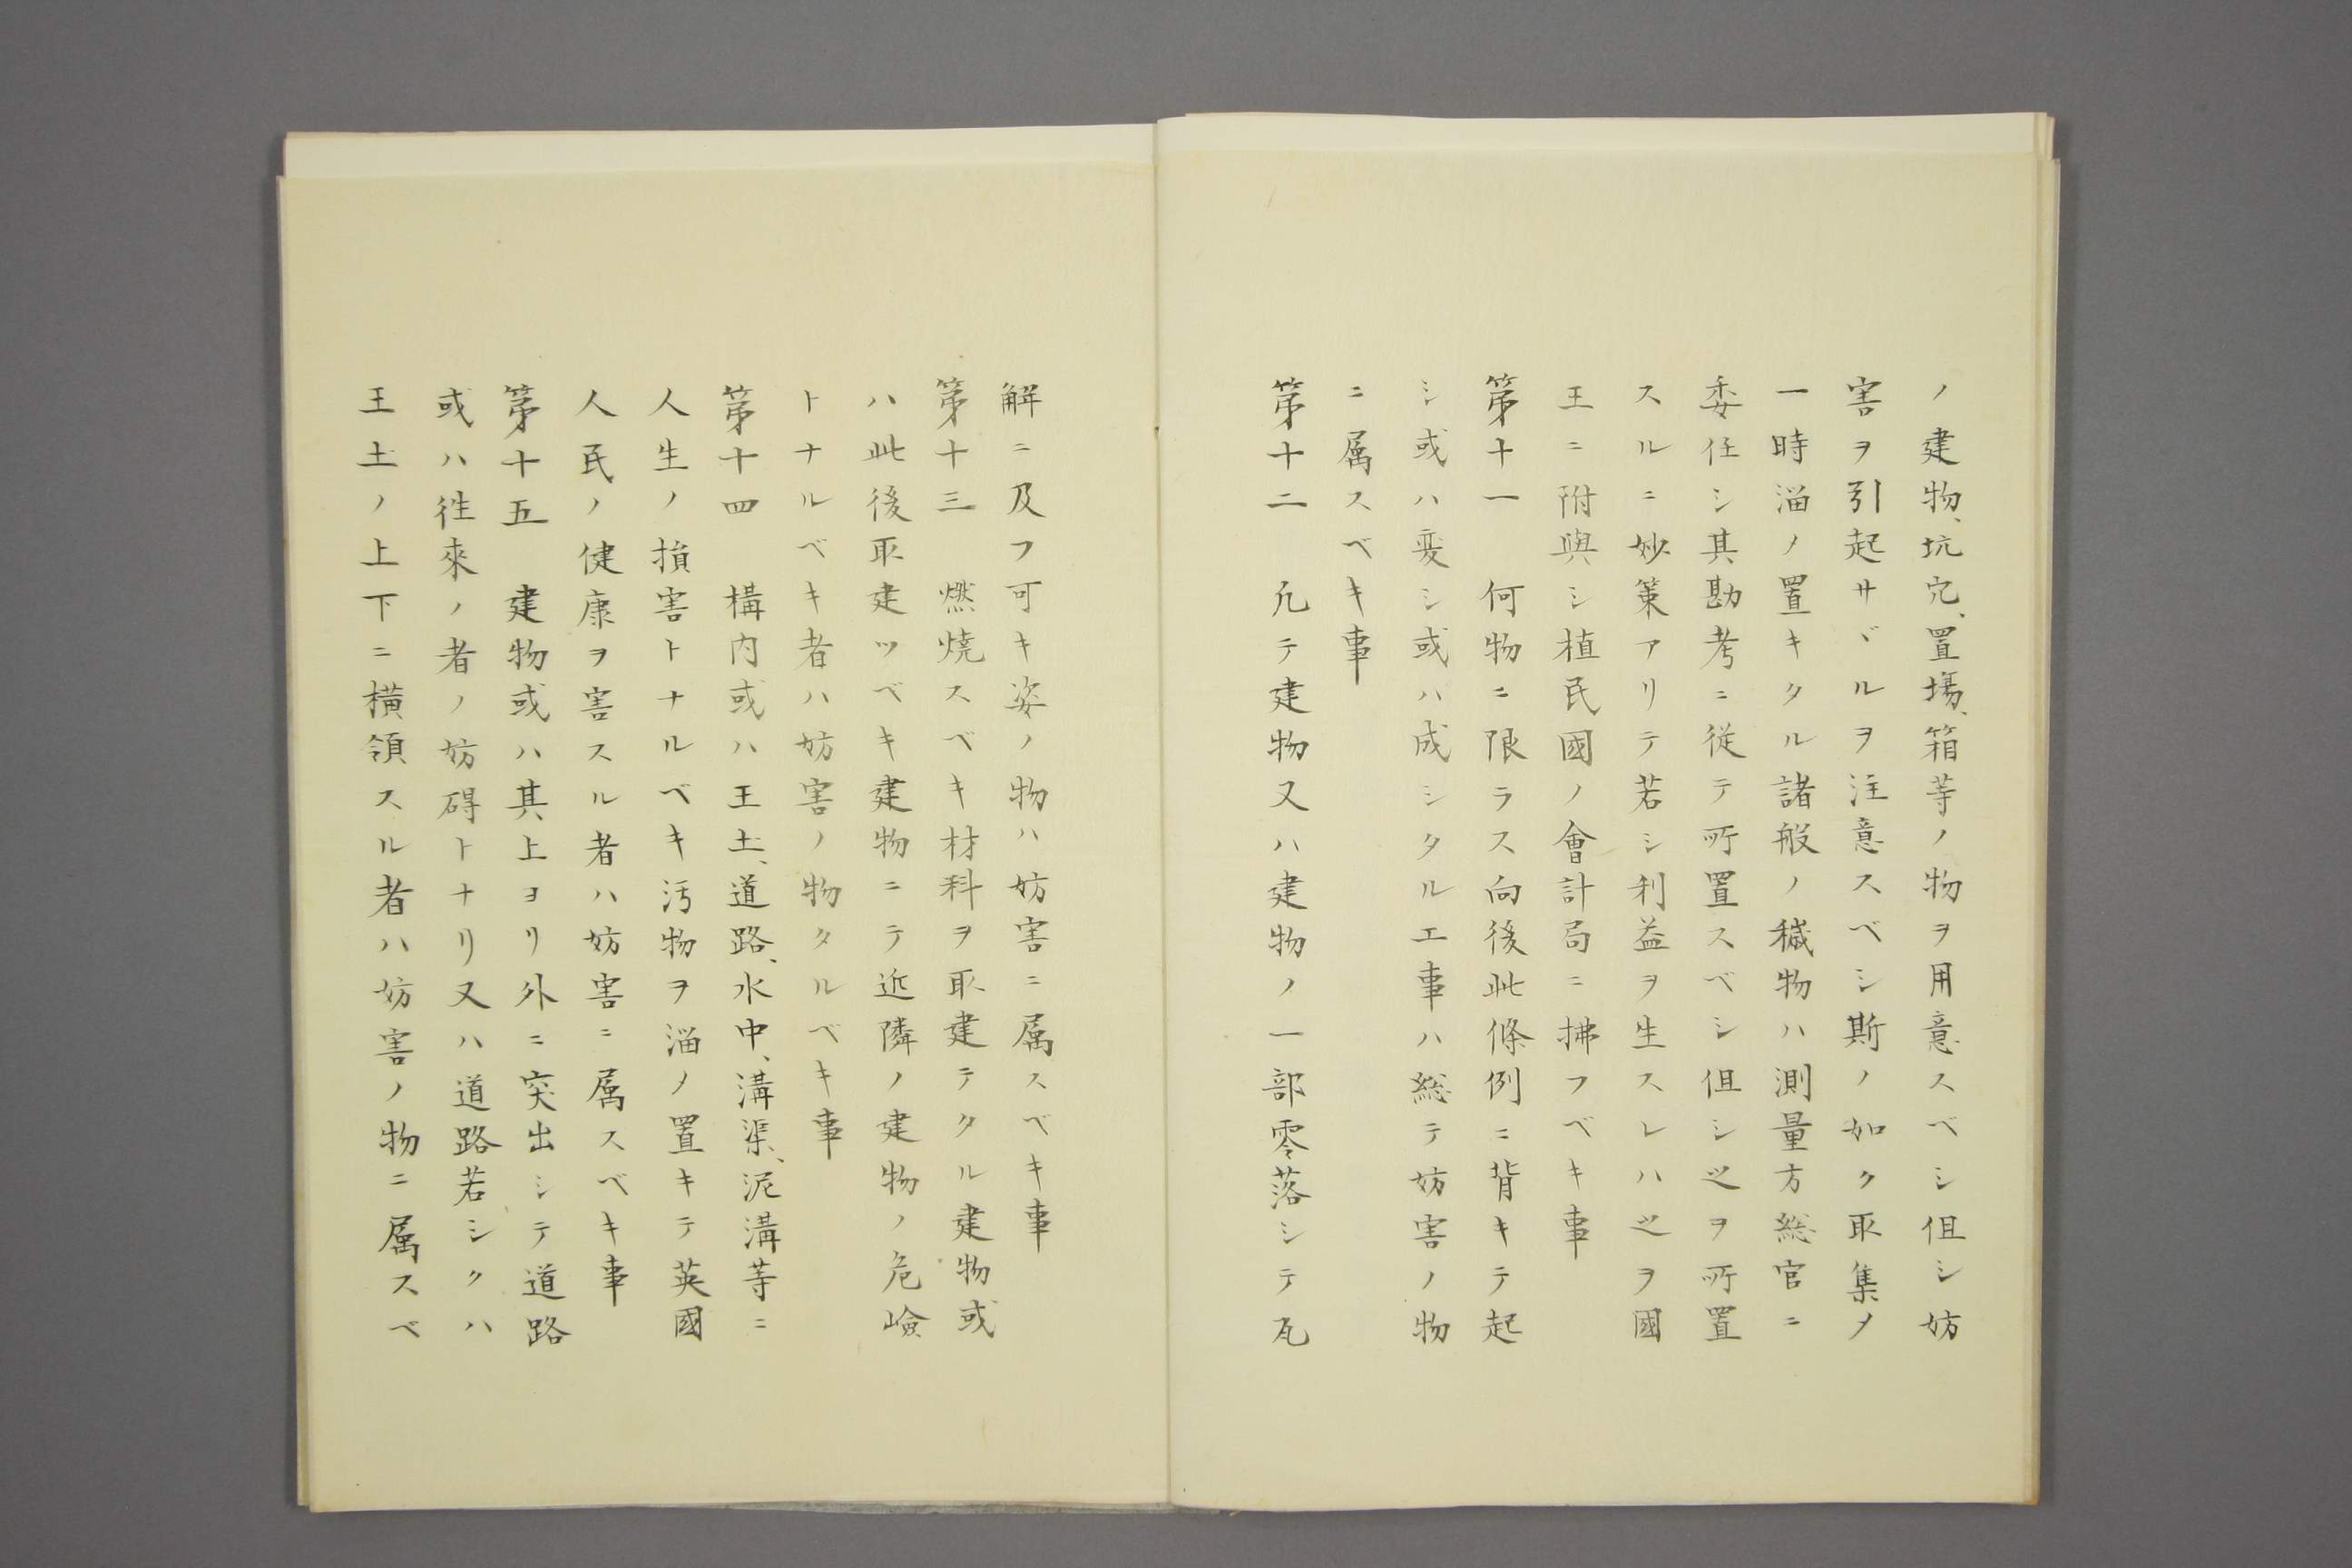 ノ建物、坑穴、置場、箱等ノ物ヲ用意スベシ但シ妨
害ヲ引起サヾルヲ注意スベシ斯ノ如ク取集メ
一時溜ノ置キタル諸般ノ穢物ハ測量方総官ニ
委任シ其勘考ニ従テ所置スベシ但シ之ヲ所置
スルニ妙策アリテ若シ利益ヲ生スレハ之ヲ國
王ニ附與シ植民國ノ會計局ニ拂フベキ事
第十一　何物ニ限ラス向後此條例ニ背キテ起
シ或ハ変シ或ハ成シタル工事ハ総テ妨害ノ物
ニ属スベキ事
第十二　凢テ建物又ハ建物ノ一部零落シテ瓦
解ニ及フ可キ姿ノ物ハ妨害ニ属スベキ事
第十三　燃焼スベキ材料ヲ取建テタル建物或
ハ此後取建ツベキ建物ニテ近隣ノ建物ノ危嶮
トナルベキ者ハ妨害ノ物タルベキ事
第十四　構内或ハ王土、道路、水中、溝渠、泥溝等ニ
人生ノ損害トナルベキ汚物ヲ溜メ置キテ英國
人民ノ健康ヲ害スル者ハ妨害ニ属スベキ事
第十五　建物或ハ其上ヨリ外ニ突出シテ道路
或ハ徃來ノ者ノ妨碍トナリ又ハ道路若シクハ
王土ノ上下ニ横領スル者ハ妨害ノ物ニ属スベ